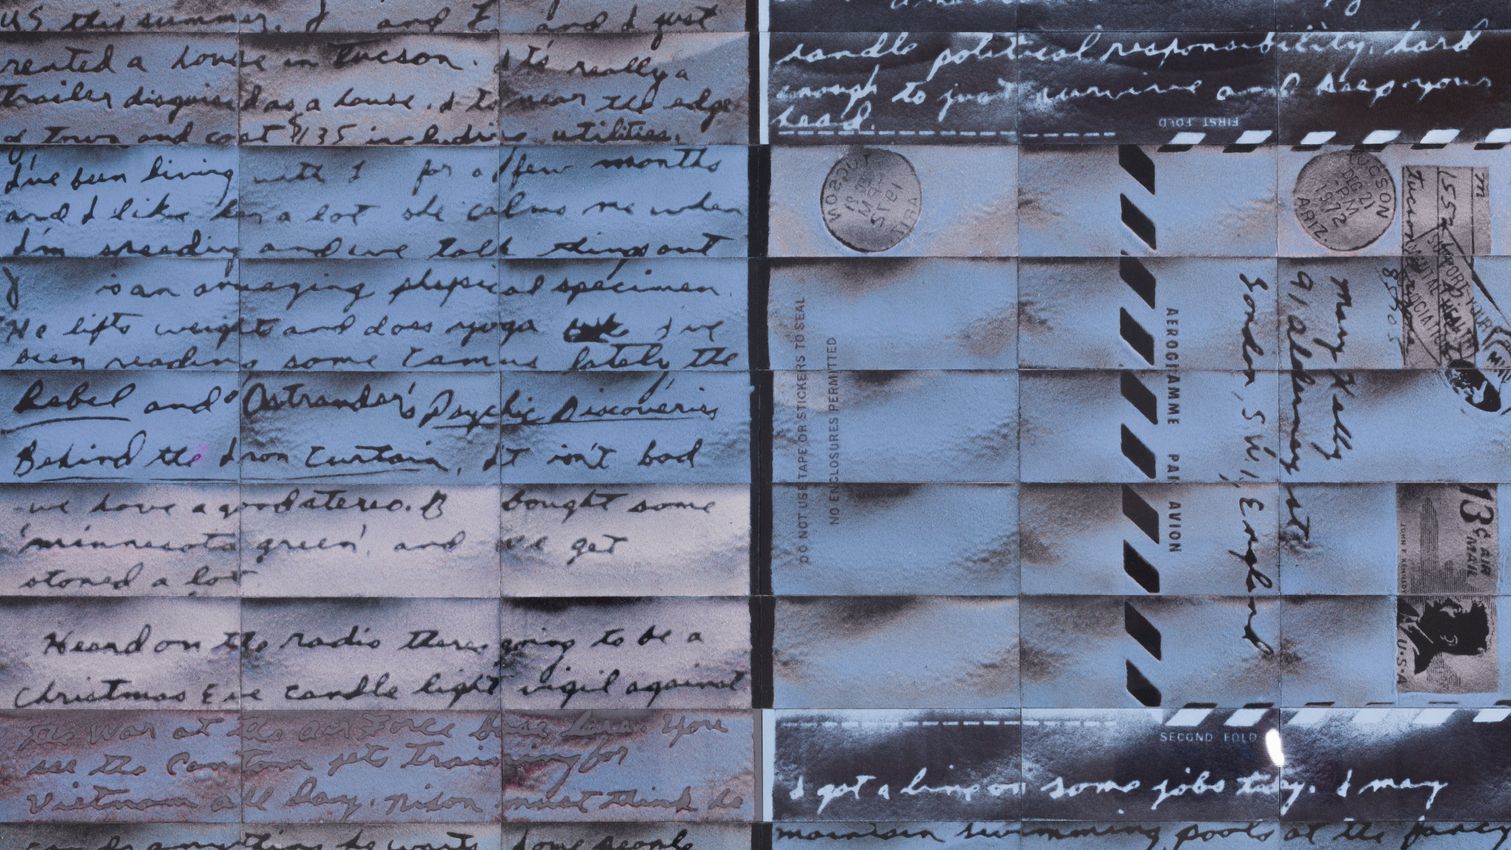 US this summer. J and E and I just
rented a house in Tucson. It's really a
trailer disguised as a house. It's near the edge
of town and cost $135 including utilities.
I've been living with I for a few months
and I like her a lot she calms me when
I'm speeding and we talk things out
J is an amazing physical specimen.
He lifts weights and does yoga I've
been reading some Camus lately the
Rebel and Ostrander's Psychic Discoveries
Behind the Iron Curtain, It isn't bad
we have a good stereo. B bought some
'minnesota green', and we get
stoned a lot
Heard on the radio theres going to be a
Christmas Eve candle light vigil against
the War at the air Force base here. You
see the Cong tom jets training for
Vietnam all day. Nixon must think he
can do anything he wants some people
handle political responsibility, hard
enough to just survive and keep your
head.
FIRST FOLD
TUCSON
ARIZ
PM
21
1972
TUCSON
ARIZ.
DEC 21
PM
1972
m
155
Tucson Arizona
85705
Mary Kelly
91 Alderney st
London, S.W.1, England
AEROGRAMME PAR AVION
DO NOT USE TAPE OR STICKERS TO SEAL
NO ENCLOSURES PERMITTED
13c
AIR MAIL
JOHN F. KENNEDY
U.S.A
SECOND FOLD
I got a line on some jobs today. I may
maintain swimming pools at the fancy